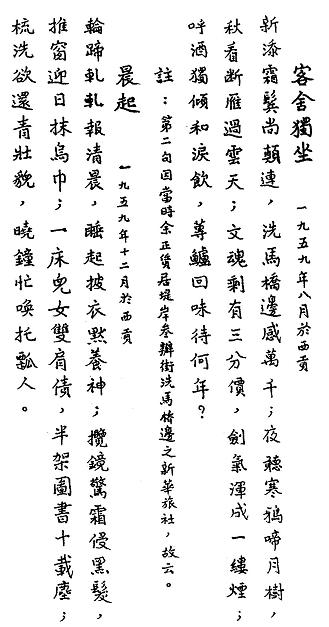 客舍獨坐 一九五九年八月於西貢
新添霜鬢尚顛連，洗馬橋邊感萬千；夜聽寒鴉啼月樹，
秋看断雁過雲天；文魂剩有三分價，劍氣渾成一縷煙；
呼酒獨傾和淚飲，蓴鱸回味待何年？
註：第二句因當時余正賃居堤岸參辦街洗馬橋邊之新華旅社，故云。
晨起 一九五九年十二月於西貢
輪蹄軋軋報清晨，睡起披衣黙養神；攬鏡驚霜侵黑髮，
推窗迎日抹烏巾；一床兒女雙肩債，半架圖書十載塵；
梳洗欲還青壯貌，曉鐘忙喚托瓢人。